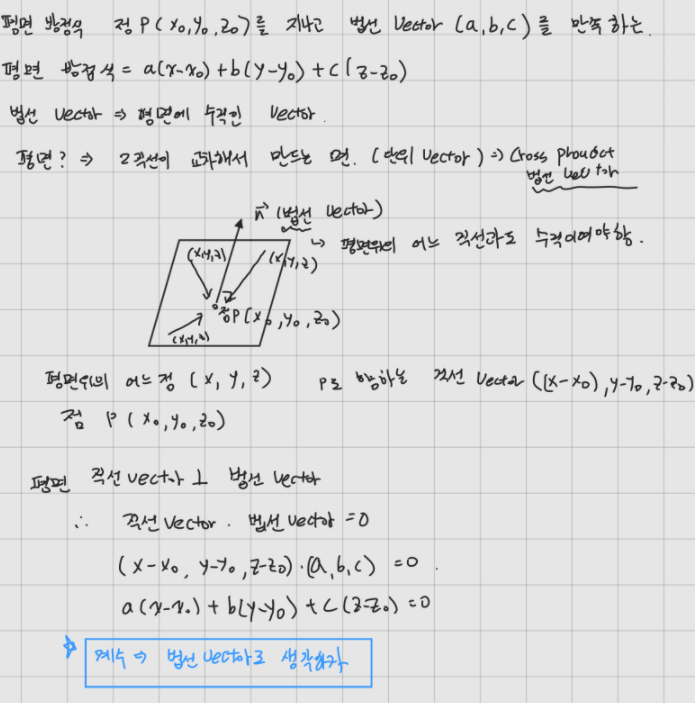 평면 방정식 점 P(x₀,y₀,z₀)를 지나고 법선 Vector (a,b,c)를 만족하는.
평면 방정식 = a(x-x₀)+b(y-y₀)+c(z-z₀)
법선 Vector ⇒ 평면에 수직인 Vector.
평면? ⇒ 2직선이 교차해서 만드는 면. (단위 Vector) ⇒ Cross Phouduct
법선 Vector
n⃗ (법선 Vector)
↳ 평면위의 어느 직선과도 수직이여야함.
(x,y,z)
(x,y,z)
점P(x₀,y₀,z₀)
(x,y,z)
평면위의 어느 점 (x, y, z) P로 향하는 직선 Vector ((x-x₀), y-y₀, z-z₀)
점 P (x₀,y₀,z₀)
평면 직선 vector ⊥ 법선 vector
∴ 직선 Vector · 법선 Vector = 0
(x-x₀, y-y₀, z-z₀)·(a,b,c) = 0.
a(x-x₀) + b(y-y₀) + c(z-z₀) = 0
☆ 계수 ⇒ 법선 Vector로 생각하자